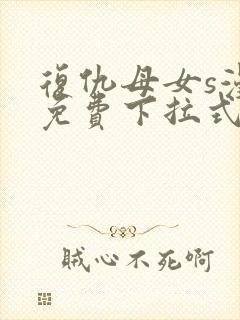 復仇母女s
免費下拉式
贼心不死啊